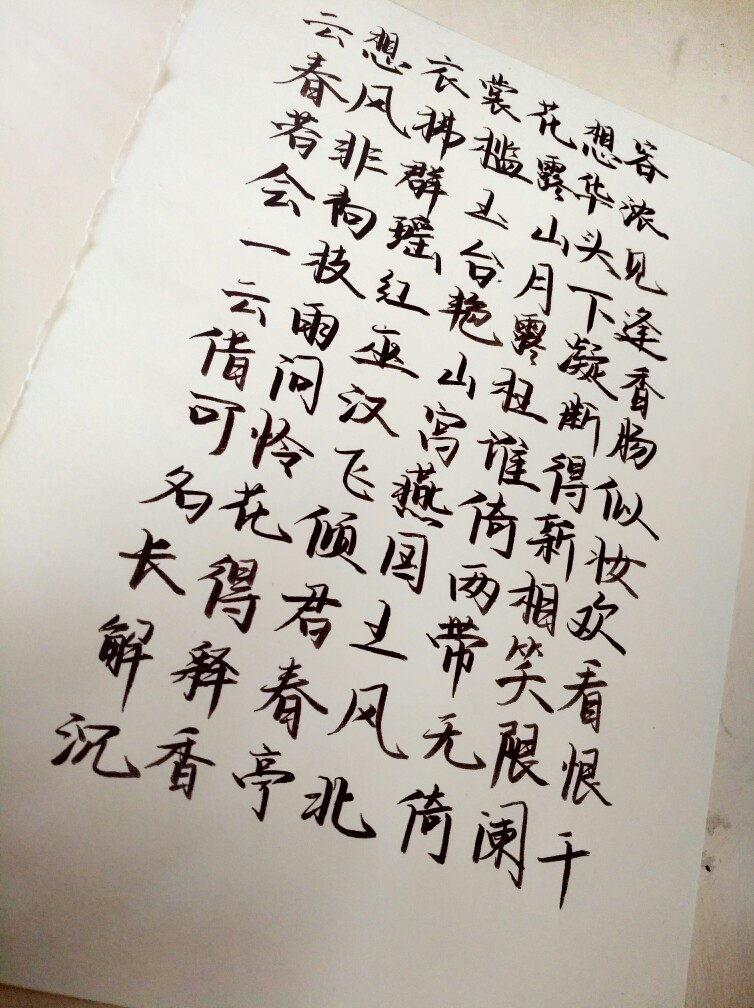 云想衣裳花想容
春风拂槛露华浓
若非群玉山头见
会向瑶台月下逢
一枝红艳露凝香
云雨巫山枉断肠
借问汉宫谁得似
可怜飞燕倚新妆
名花倾国两相欢
长得君王带笑看
解释春风无限恨
沉香亭北倚阑干